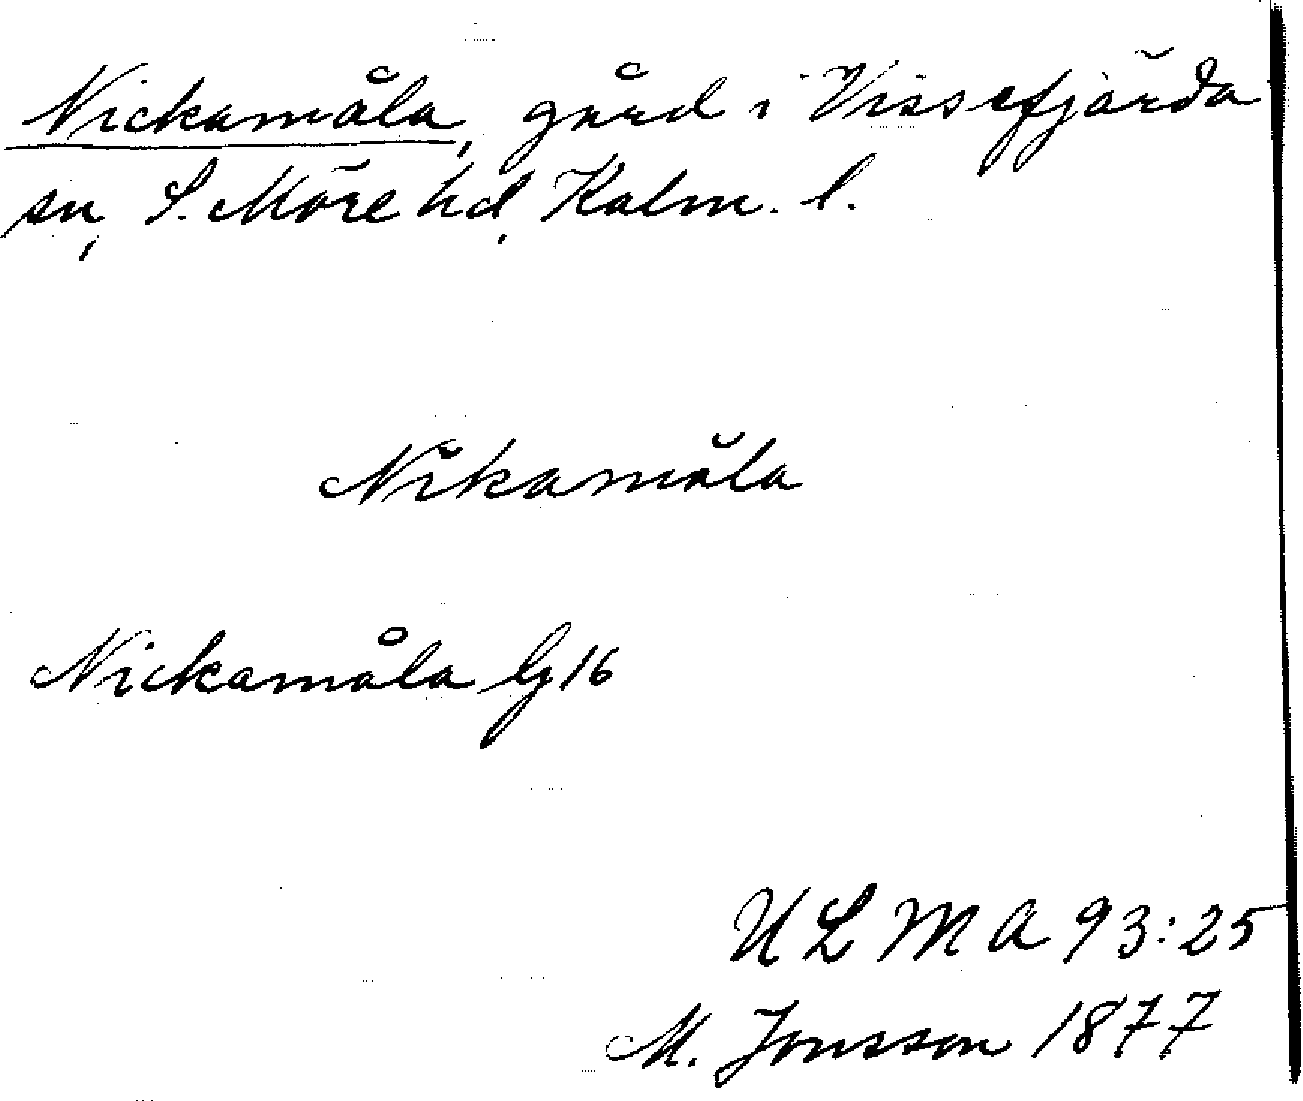 Nickamåla, gård i Vissefjärda
sn, S. Möre hd, Kalm. l.
Nĭkamåla
Nickamåla G16
ULMA 93:25
M. Jonsson 1877